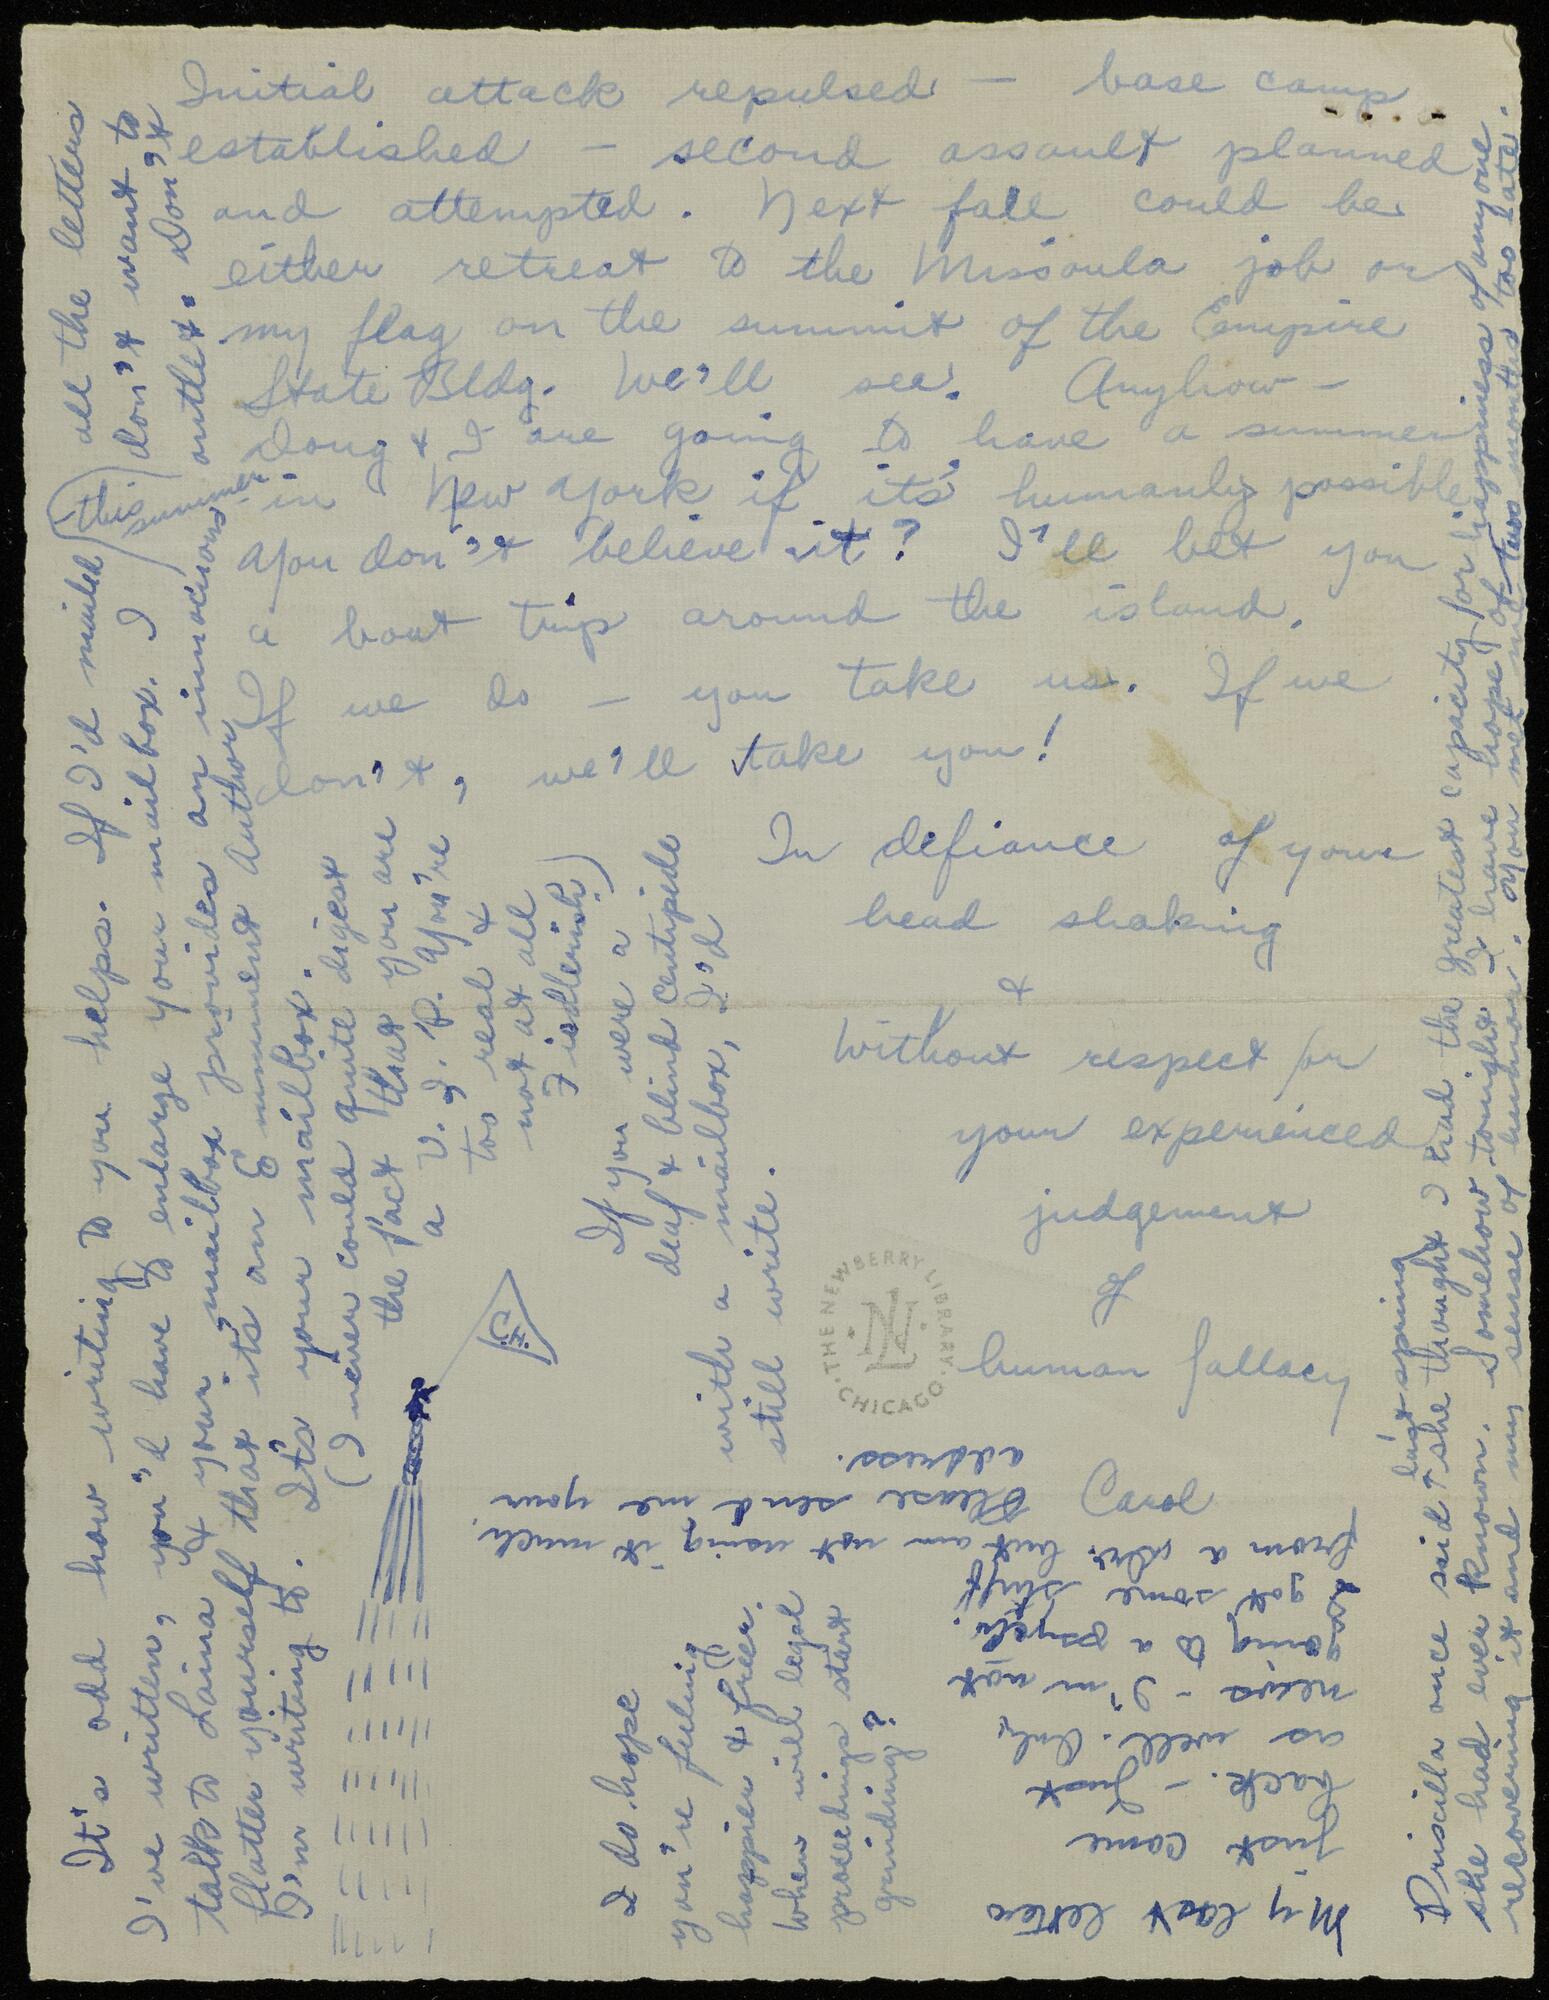 Initial attack repulsed — base camp
established — second assault planned
and attempted. Next fall could be
either retreat to the Missoula job or
my flag on the summit of the Empire
State Bldg. We'll see. Anyhow —
Doug & I are going to have a summer
in New York if it's humanly possible
You don't believe it? I'll bet you
a boat trip around the island.
If we do — you take us. If we
don't, we'll take you!
In defiance of your
head shaking
&
Without respect for
your experienced
judgement
of
human fallacy
Carol
It's odd how writing to you helps. If I'd mailed all the letters
I've written, (this summer) you'd have to enlarge your mailbox. I don't want to
talk to Laina & your mailbox provides an innocuous outlet. Don't
flatter yourself that it's an Eminent Author
I'm writing to. It's your mailbox.
(I never could quite digest
the fact that you are
a V.I.P. You're
too real &
not at all
Fiedlerish.)
If you were a
deaf & blind centipede
with a mailbox, I'd
still write.
I do hope
you're feeling
happier & freer.
When will legal
proceedings start
grinding?
My last letters
just came
back. — Just
as well. Only
news — I'm not
going to a psych.
So got some stuff
from a Dr. but am not using it much.
Please send me your
address.
Priscilla once said last spring she thought I had the greatest capacity for happiness of anyone
she had ever known. Somehow tonight I have hope of
recovering it and my sense of humor. You met me two months too late.
THE NEWBERRY LIBRARY
CHICAGO